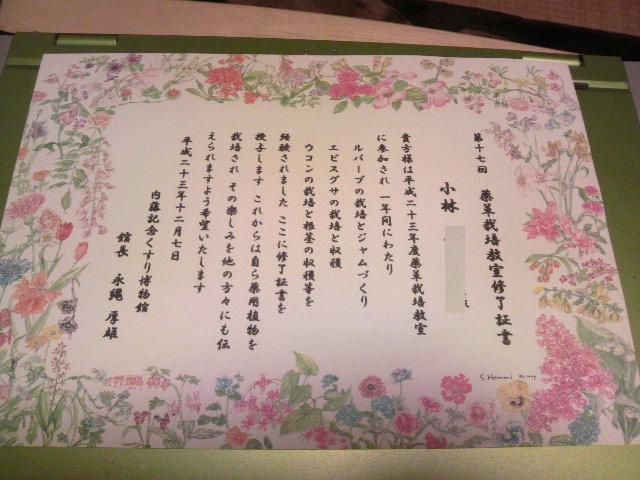 第十七回 薬草栽培教室修了証書
小林
貴方様は平成二十三年度薬草栽培教室
に参加され 一年間にわたり
ルバーブの栽培とジャムづくり
エビスグサの栽培と収穫
ウコンの栽培と根茎の収穫等を
経験されました ここに修了証書を
授与します これからは自ら薬用植物を
栽培され その楽しみを他の方々にも伝
えられますよう希望いたします
平成二十三年十二月七日
内藤記念くすり博物館
館長 永縄厚雄